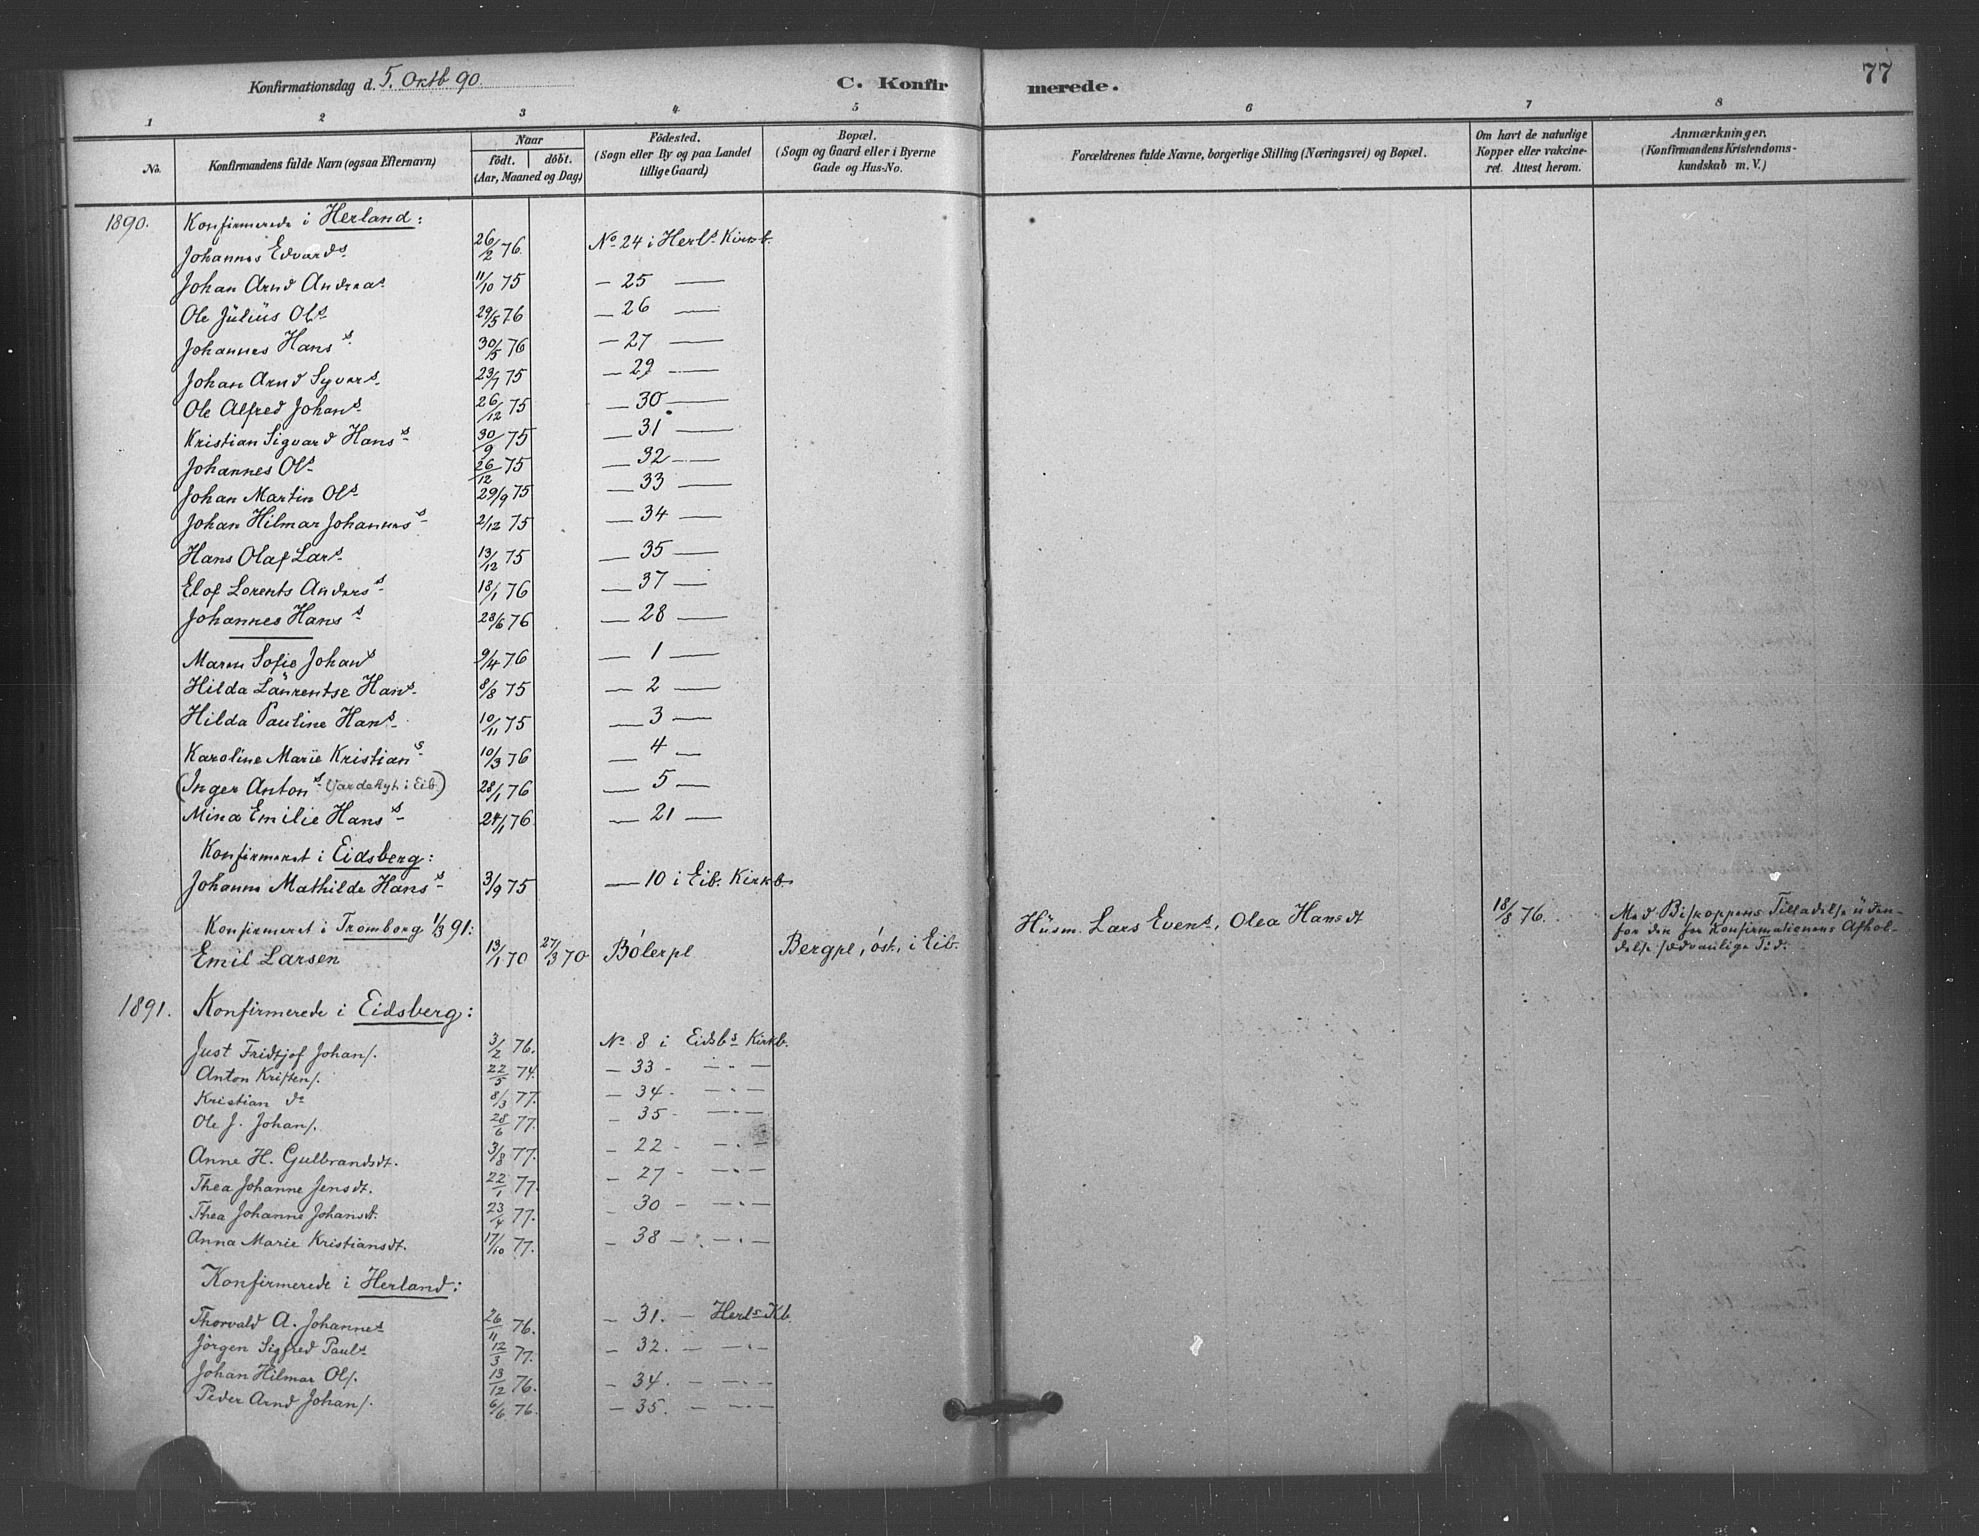 Konfirmationsdag d. 5. Oktb 90. C. Konfirmerede. 77
1 2 3 4 5 6 7 8
No. Konfirmandens fulde Navn (ogsaa Efternavn) Naar födt. döbt. (Aar, Maaned og Dag) Födested. (Sogn eller By og paa Landet tillige Gaard) Bopæl. (Sogn og Gaard eller i Byerne Gade og Hus-No. Forældrenes fulde Navne, borgerlige Stilling (Næringsvei) og Bopæl. Om havt de naturlige Kopper eller vakcineret. Attest herom. Anmærkninger. (Konfirmandens Kristendomskundskab m. V.)
1890. Konfirmerede i Herland:
Johannes Edvards. 26/2 76. No 24 i Herls Kirkb.
Johan Arnd Andreas. 11/10 75 — 25 —
Ole Julius Ols. 29/5 76 — 26 —
Johannes Hans. 30/5 76 — 27 —
Johan Arnd Syvers. 23/7 75 — 29 —
Ole Alfred Johans. 26/12 75 — 30 —
Kristian Sigvard Hans. 30/9 75 — 31 —
Johannes Ols. 26/12 75 — 32 —
Johan Martin Ols. 29/9 75 — 33 —
Johan Hilmar Johannes. 2/12 75 — 34 —
Hans Olaf Lars. 13/12 75 — 35 —
Elof Lorents Anders. 18/1 76 — 37 —
Johannes Hans. 28/6 76 — 28 —
Maren Sofie Johans 9/4 76 — 1 —
Hilda Laurentse Hans. 8/8 75 — 2 —
Hilda Pauline Hans. 10/11 75 — 3 —
Karoline Marie Kristians. 10/3 76 — 4 —
(Inger Antons. i Eib.) 28/1 76 — 5 —
Mina Emilie Hans. 24/1 76 — 21 —
Konfirmeret i Eidsberg:
Johanne Mathilde Hans. 3/9 75 — 10 i Eib. Kirkb.
Konfirmeret i Tromborg 1/3 91:
Emil Larsen 13/1 70 27/3 70 Bölerpl Bergpl, öst, i Eib. Husm. Lars Evens, Olea Hansdt 18/8 76. Med Biskoppens Tilladelse uden-
for den for Konfirmationens Afhol-
delse sædvanlige Tid.
1891. Konfirmerede i Eidsberg:
Just Fridtjof Johans. 3/2 76. No 8 i Eidsbs Kirkb.
Anton Kristens. 22/5 74. — 33 — " —
Kristian do 8/3 77. — 34 — " —
Ole J. Johans. 28/6 77. — 35 — " —
Anne H. Gulbrandsdt. 3/8 77. — 22 — " —
Thea Johanne Jensdt. 22/1 77. — 27 — " —
Thea Johanne Johansdt. 23/4 77. — 30 — " —
Anna Marie Kristiansdt. 17/10 77. — 38 — " —
Konfirmerede i Herland:
Thorvald A. Johannes 26/11 76. — 31. — Herls Kb.
Jörgen Sigfred Pauls 12/3 77. — 32. — " —
Johan Hilmar Ols. 13/12 76. — 34. — " —
Peder Arnd Johans. 6/6 76. — 35. — " —